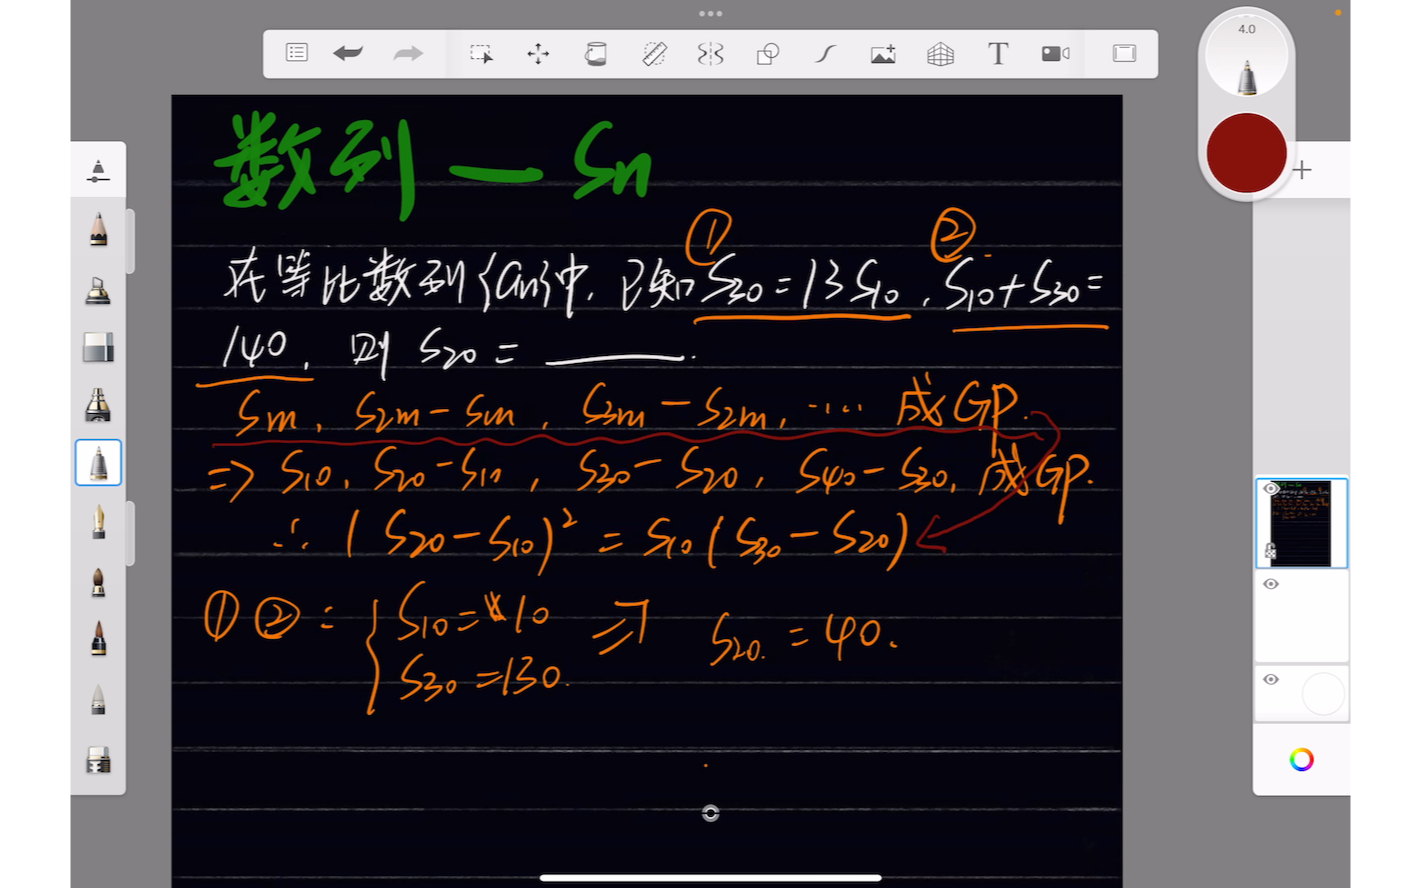 4.0
T
数列—Sn
① ②
在等比数列{an}中,已知S30=13S10,S10+S30=
140,则S20=______.
Sm,S2m-Sm,S3m-S2m,……成GP.
=> S10,S20-S10,S30-S20,S40-S30,成GP.
∴ (S20-S10)²=S10(S30-S20)
①②:{S10=10 => S20.=40.
S30=130.